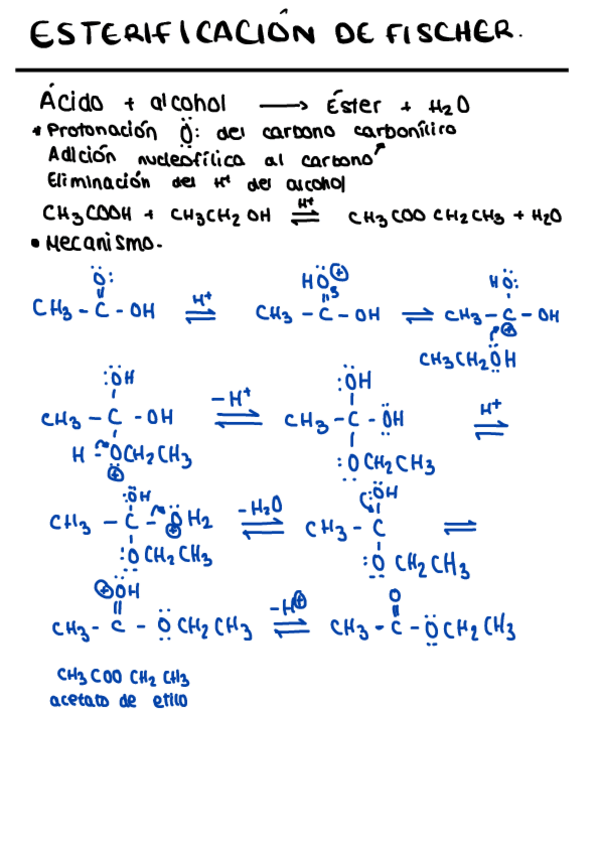 ESTERIFICACIÓN DE FISCHER.
Ácido + alcohol → Éster + H2O
• Protonación Ö: del carbono carbonílico
Adición nucleofílica al carbono
Eliminación del H+ del alcohol
CH3COOH + CH3CH2OH ⇌ H+ CH3COO CH2CH3 + H2O
• Mecanismo.
Ö: HÖ⊕ HÖ:
CH3 - C - OH ⇌ H+ CH3 - C - OH ⇌ CH3 - C - OH
⊕
CH3CH2ÖH
:ÖH :ÖH
CH3 - C - OH ⇌ -H+ CH3 - C - ÖH ⇌ H+
H - OCH2CH3 :OCH2CH3
⊕
:ÖH :ÖH
CH3 - C - ÖH2 ⇌ -H2O CH3 - C ⇌
⊕
:OCH2CH3 :O CH2CH3
⊕ÖH O
CH3 - C - ÖCH2CH3 ⇌ -H⊕ CH3 - C - ÖCH2CH3
CH3COO CH2 CH3
acetato de etilo